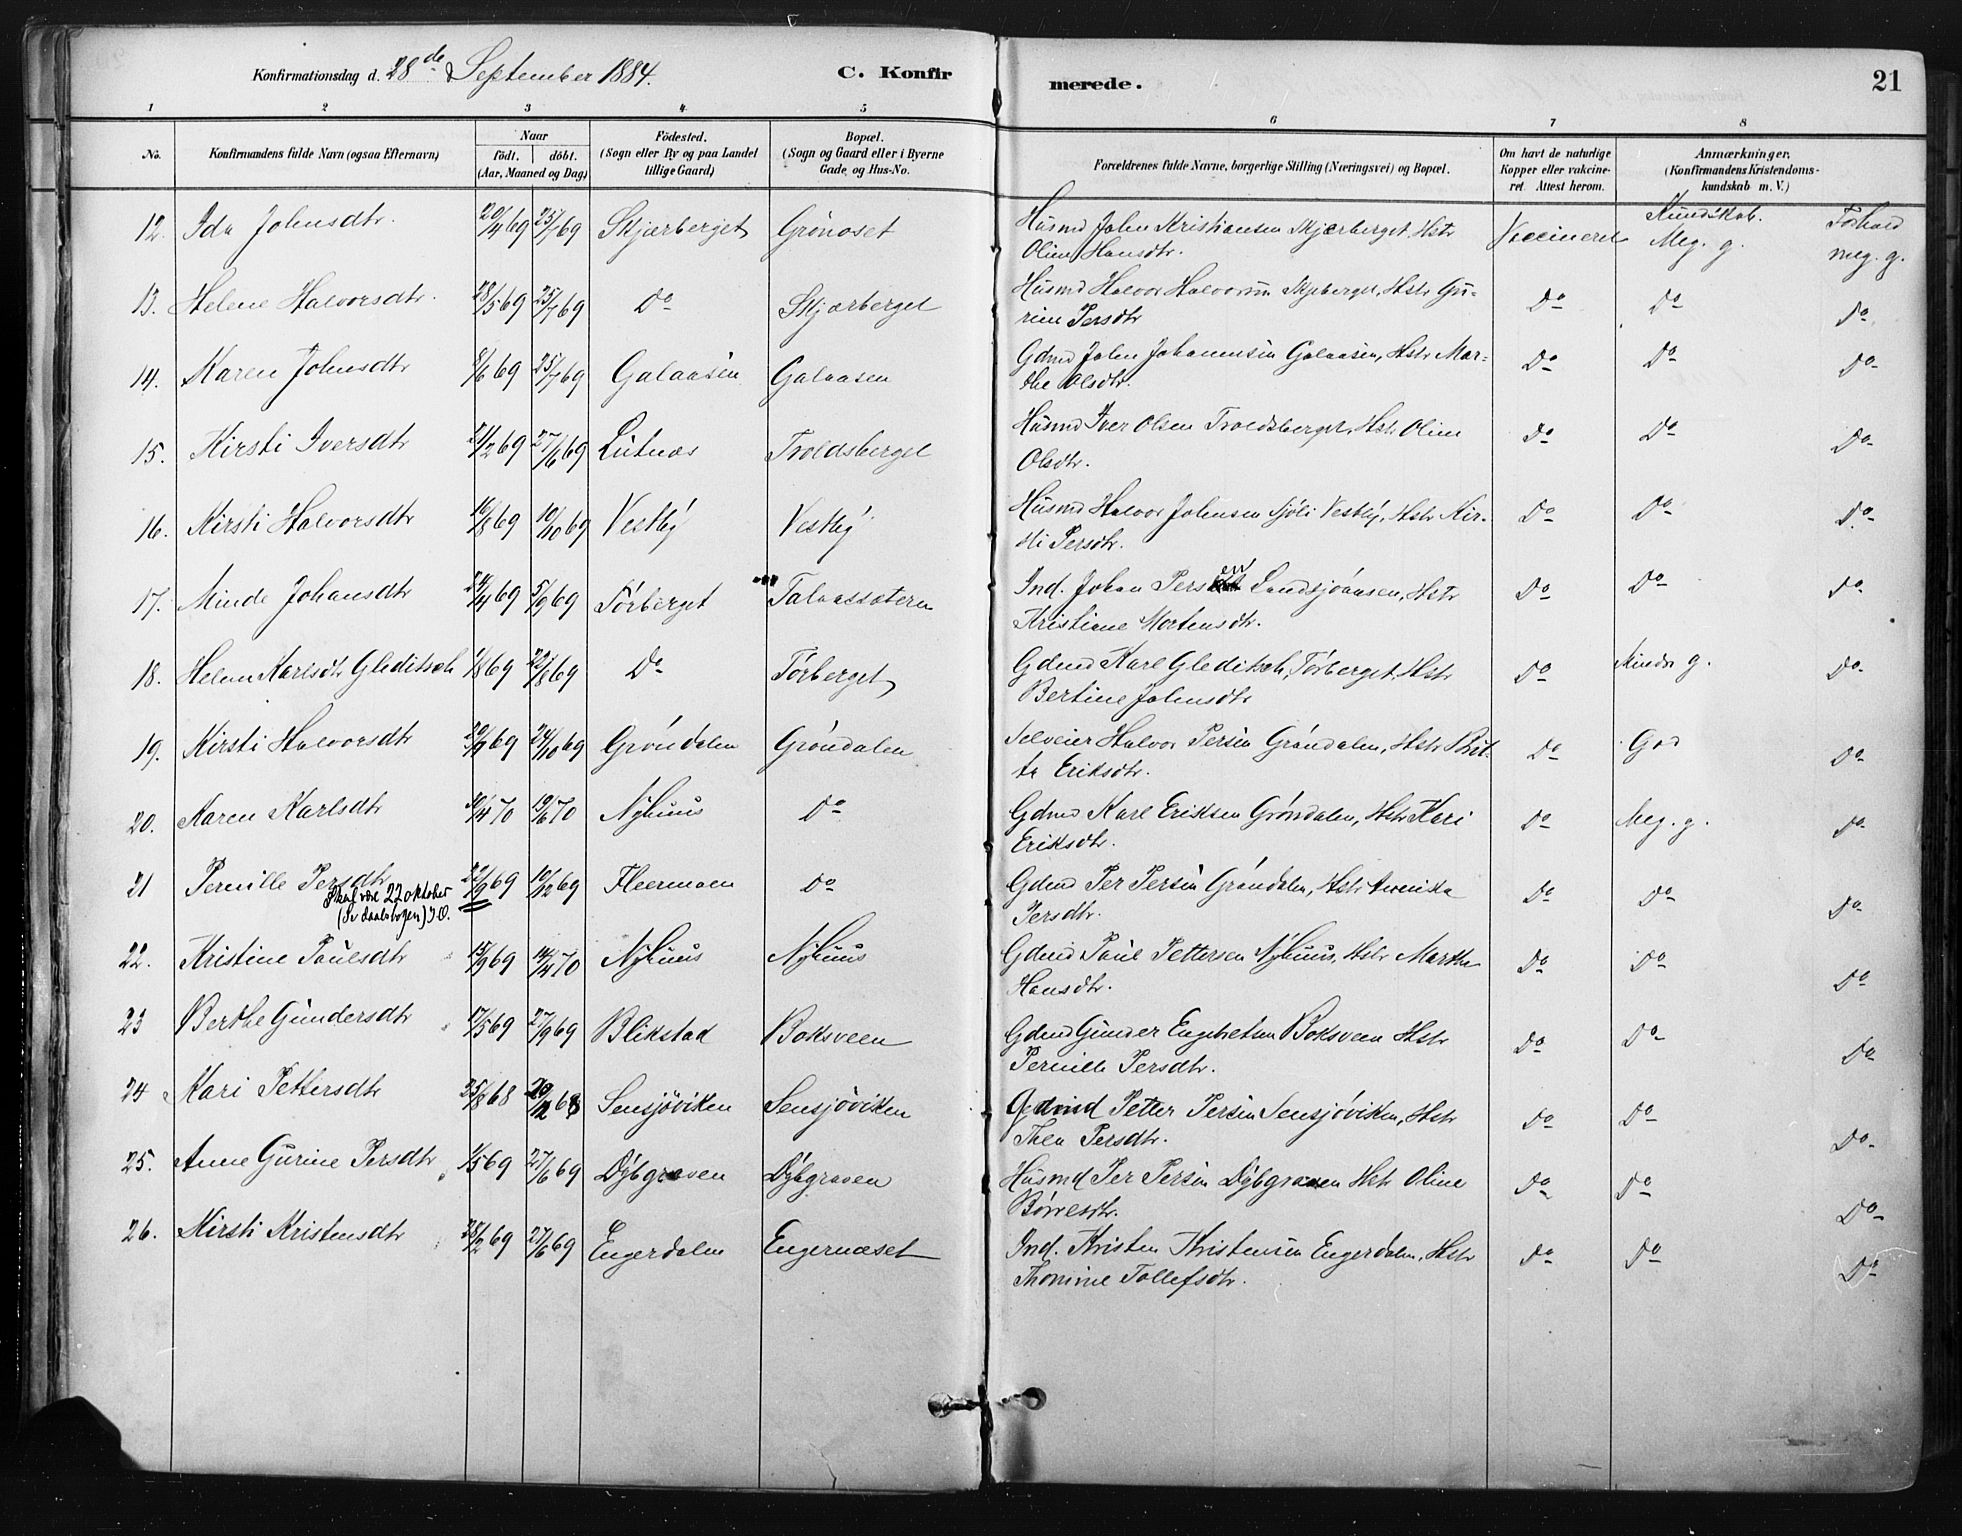 Konfirmationsdag d. 28de September 1884. C. Konfirmerede. 21
1 2 3 4 5 6 7 8
No.
Konfirmandens fulde Navn (ogsaa Efternavn)
Naar
födt. döbt.
(Aar, Maaned og Dag)
Födested.
(Sogn eller By og paa Landet
tillige Gaard)
Bopæl.
(Sogn og Gaard eller i Byerne
Gade og Hus-No.
Forældrenes fulde Navne, borgerlige Stilling (Næringsvei) og Bopæl.
Om havt de naturlige
Kopper eller vakcine-
ret. Attest herom.
Anmærkninger.
(Konfirmandens Kristendoms-
kundskab m. V.)
Kundskab. Forhold
12. Ida Johnsdtr. 20/4 69 25/7 69 Skjærberget Grönoset Husmd John Kristiansen Skjærberget Hstr Vaccineret Meg. g. meg. g.
Oline Hansdtr.
13. Helene Halvorsdtr. 28/5 69 25/7 69 Do Skjærberget Husmd Halvor Halvorsen Skjeberget, Hstr Gu- Do Do Do
rine Persdtr
14. Karen Johnsdtr 8/6 69 25/7 69 Galaasen Galaasen Gdmd John Johannesen Galaasen, Hstr Mar- Do Do Do
the Olsdtr.
15. Kirsti Iversdtr 21/2 69 27/6 69 Lutnæs Troldsberget Husmd Iver Olsen Troldsberget, Hstr Oline Do Do Do
Olsdtr.
16. Kirsti Halvorsdtr 16/8 69 10/10 69 Vestby Vestby Husmd Halvor Johnsen Sjöli Vestby, Hstr Kir- Do Do Do
sti Persdtr.
17. Minde Johansdtr 24/4 69 5/9 69 Törberget Talaassætern Ind. Johan Persen Landsjöaasen, Hstr Do Do Do
Kristiane Mortensdtr.
18. Helene Karlsdtr Gleditsch 1/8 69 22/8 69 Do Törberget Gdmd Karl Gleditsch, Törberget, Hstr Do Mindr g. Do
Bertine Johnsdtr
19. Kirsti Halvorsdtr 20/9 69 24/10 69 Gröndalen Gröndalen Selveier Halvor Persen Gröndalen, Hstr Brit- Do God Do
ta Eriksdtr.
20. Karen Karlsdtr 30/4 70 19/6 70 Nyhuus Do Gdmd Karl Eriksen Gröndalen, Hstr Kari Do Meg. g. Do
Eriksdtr.
21 Pernille Persdtr 22/9 69 10/12 69 Fleermoen Do Gdmd Per Persen Gröndalen, Hstr Do Do Do
Skal være 22 oktober
(Se daabsbogen) J.O.
Persdtr.
22. Kristine Paulsdtr 15/9 69 14/4 70 Nyhuus Nyhuus Gdmd Paul Pettersen Nyhuus, Hstr Marthe Do Do Do
Hansdtr.
23 Berthe Gundersdtr 17/5 69 27/9 69 Blikstad Boksveen Gdmd Gunder Engebretsen Boksveen Hstr Do Do Do
Pernille Persdtr.
24 Kari Pettersdtr 25/8 68 20/12 68 Sensjöviken Sensjöviken Gdmd Petter Persen Sensjöviken, Hstr Do Do Do
Thea Persdtr.
25. Anne Gurine Persdtr 1/5 69 27/6 69 Dybgraven Dybgraven Husmd Per Persen Dybgraven Hstr Oline Do Do Do
Börresdtr.
26. Kirsti Kristensdtr 28/2 69 27/6 69 Engerdalen Engernæset Ind. Kristen Kristensen Engerdalen, Hstr Do Do Do
Thomine Tollefsdtr.